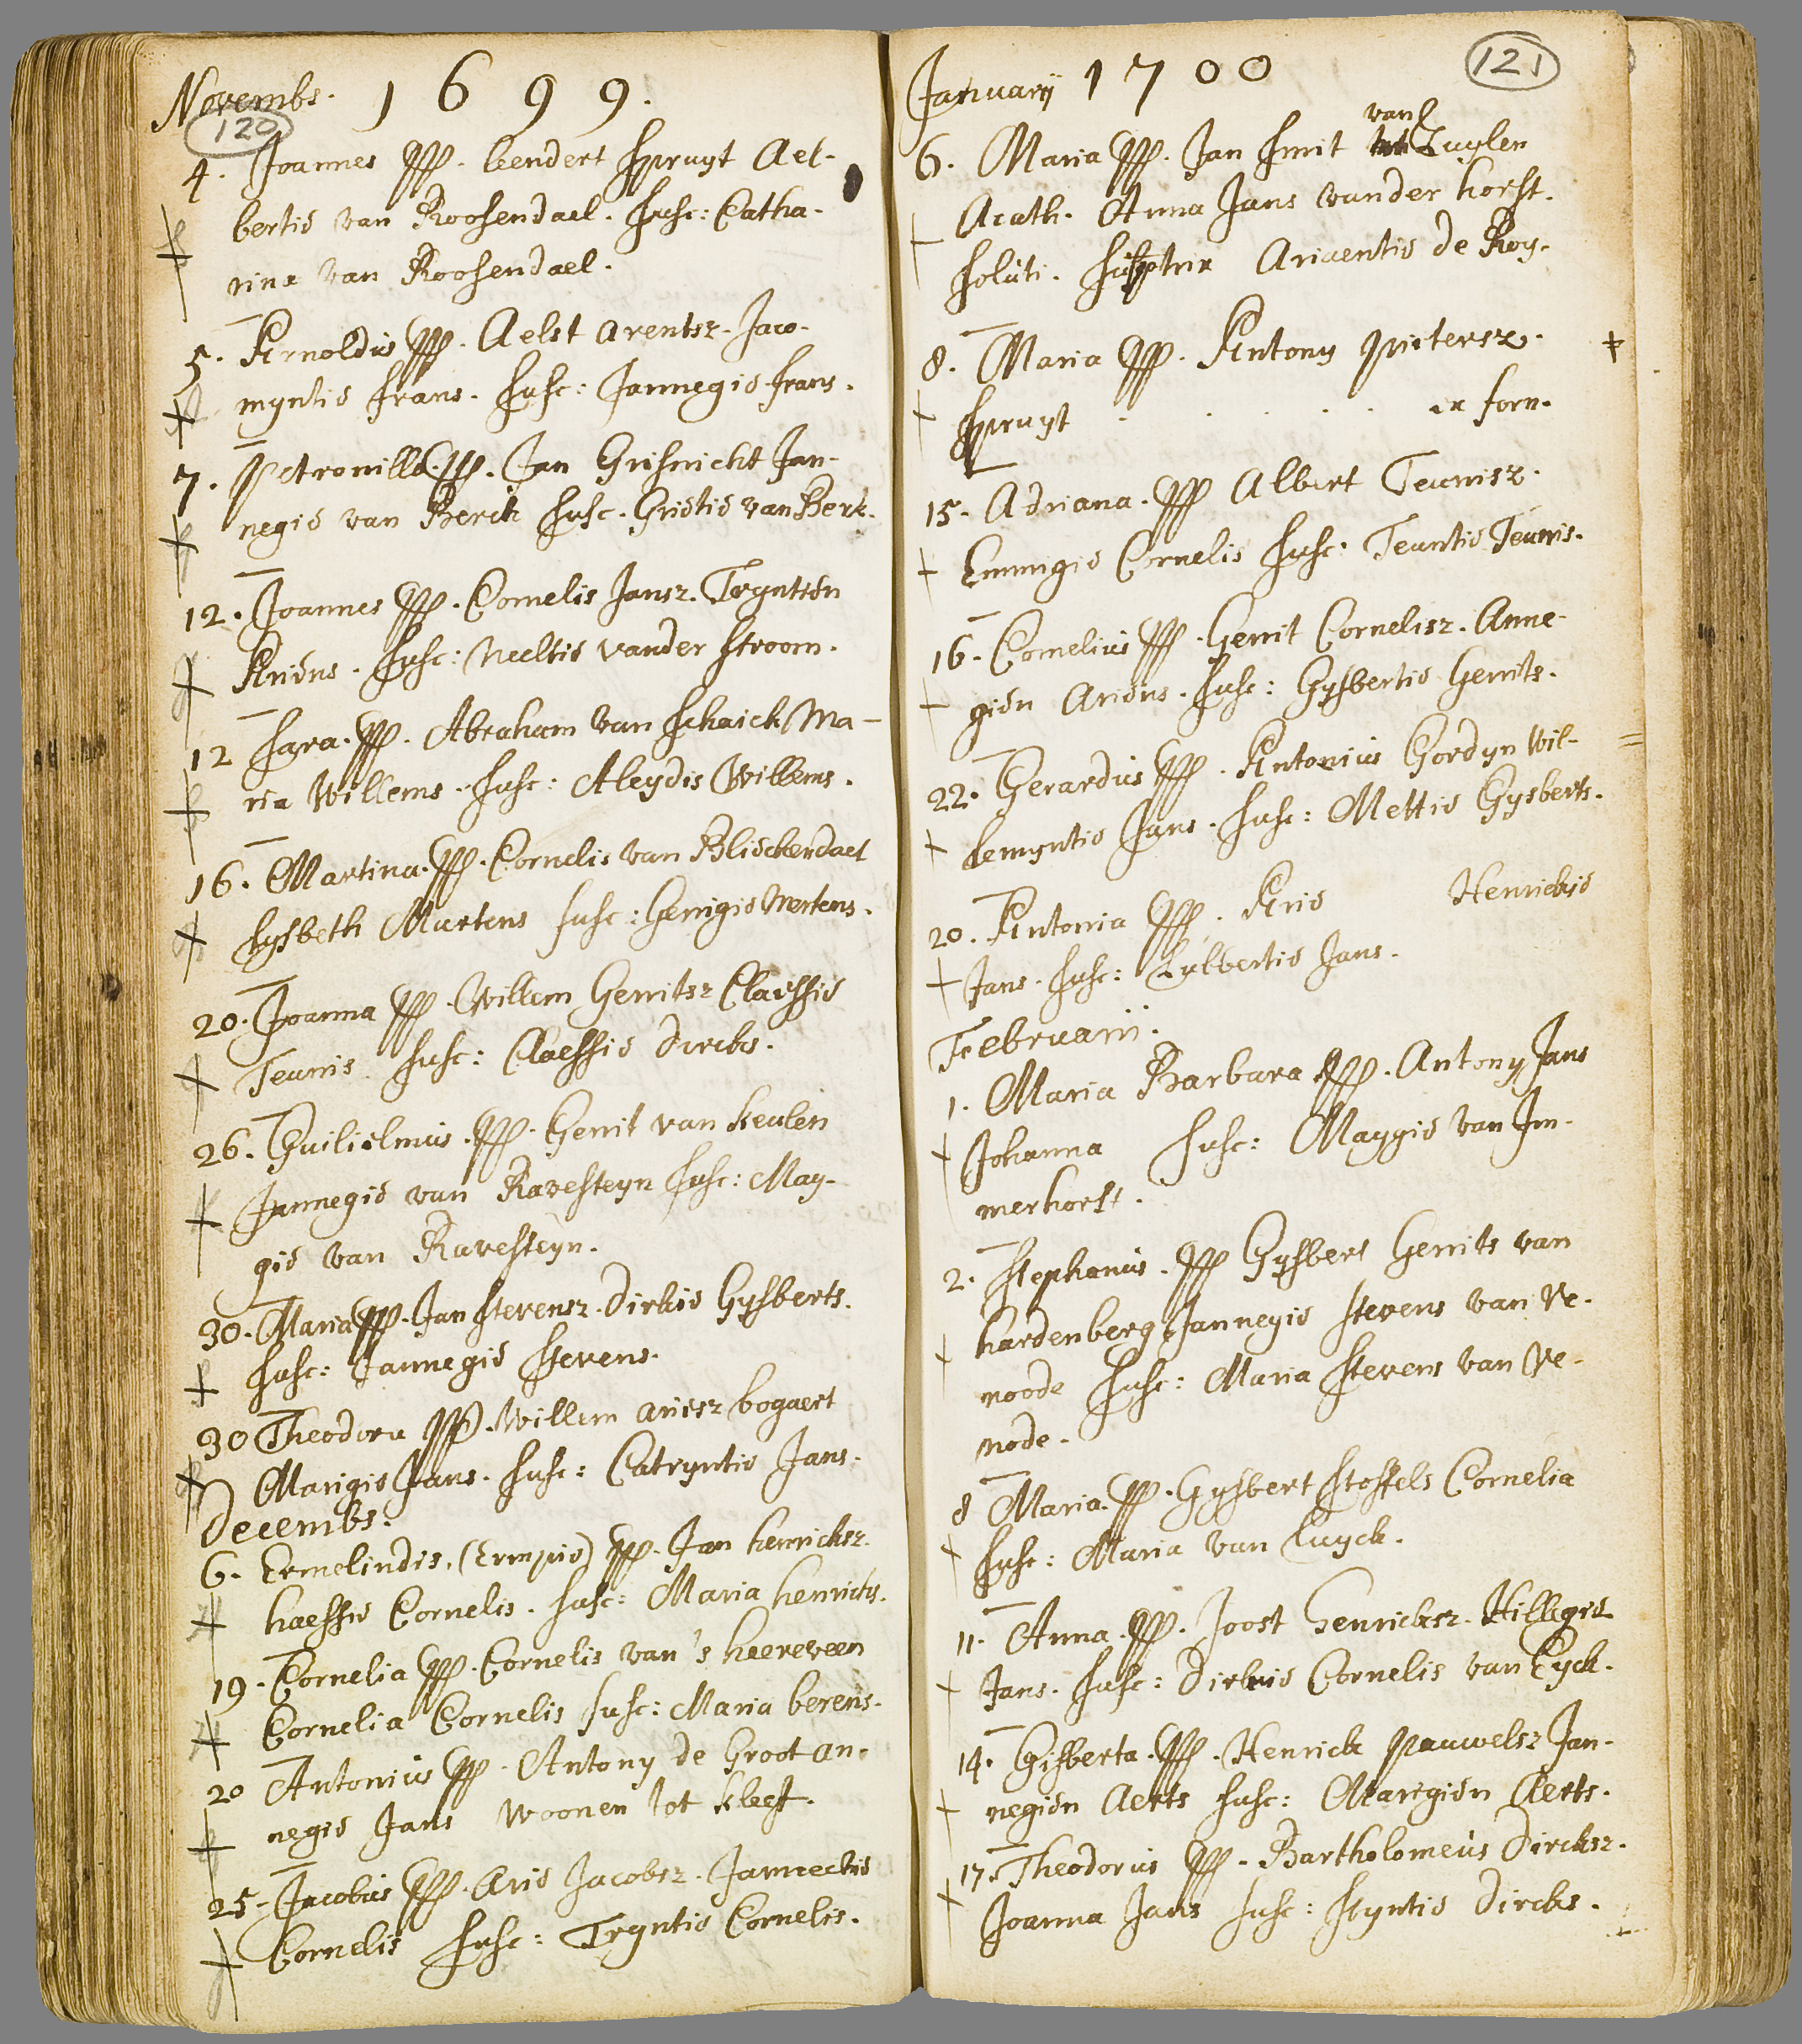 Novembs. 1699.
120
4. Joannes PP. Leendert Spruyt Ael-
bertie van Roosendael. Susc: Catha-
rina van Roosendael.
5. Arnoldus PP. Aelst arentsz. Jaco-
myntie frans. Susc: Jannegie frans.
7. Petronilla PP. Jan Grisnicht Jan-
negie van Berck Susc. Grietie van Berk.
12. Joannes PP. Cornelis Jansz. Tryntien
Ariens. Susc: Neeltie vander Stroom.
12 Sara. PP. Abraham van Schaick Ma-
ria Willems. Susc: Aleydis Willems.
16. Martina. PP. Cornelis van Blieckendael
Lysbeth Martens susc: Gerrigie Mertens.
20. Joanna PP. Willem Gerritsz Claessie
Teunis susc: Claessie dircks.
26. Guilielmus. PP. Gerrit van Keulen
Jannegie van Ravesteyn Susc: May-
gie van Ravesteyn.
30. Maria PP. Jan Stevensz. Dirkie Gysberts.
Susc: Jannegie Stevens.
30 Theodora PP. Willem ariesz bogaert
Marigie Jans. Susc: Catryntie Jans.
Decembs.
6. Ermelindis, (Ermpie) PP. Jan henricksz.
haessie Cornelis. susc: Maria henricks.
19. Cornelia PP. Cornelis van 's heereveen
Cornelia Cornelis susc: Maria berens.
20 Antonius PP. Antony de Groot an-
negie Jans woonen tot Kleef.
25. Jacobus PP. Arie Jacobsz. Jannectie
Cornelis Susc: Tryntie Cornelis.
Januarij 1700
121
van
6. Maria PP. Jan Smit Zuylen
Acath. Anna Jans vander horst.
Soluti. Susceptrix Ariaentie de Roy.
8. Maria PP. Antony pietersz.
Spruyt . . . . ex forn.
15. Adriana. PP Albert Teunisz.
Emmigie Cornelis Susc: Teuntie Teunis.
16. Cornelius PP. Gerrit Cornelisz. Anne-
gien Ariens. Susc: Gysbertie Gerrits.
22. Gerardus PP. Antonius Gordyn Wil-
lemyntie Jans. Susc: Mettie Gysberts.
20. Antonia PP. Arie Henrickie
Jans. Susc: Lubbertie Jans.
Februarii.
1. Maria Barbara PP. Antony Jans
Johanna Susc: Maggie van Im-
merhorst.
2. Stephanus. PP Gysbert Gerrits van
hardenberg Jannegie Stevens van Ve-
noode Susc: Maria Stevens van Ve-
node.
8 Maria. PP. Gysbert Stoffels Cornelia
Susc: Maria van Cuyck.
11. Anna. PP. Joost Henricksz. Hillegie
Jans. Susc: Dirkie Cornelis van Eyck.
14. Gisberta. PP. Henrick pauwelsz Jan-
negien Aerts susc: Marigien Aerts.
17. Theodorus PP. Bartholomeus Dircksz.
Joanna Jans susc: Styntie Dircks.